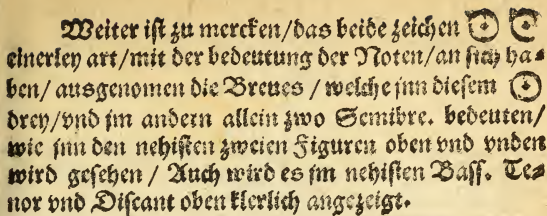 Weiter ist zu mercken/das beide zeichen ʘ
einerley art/mit der bedeutung der Noten/an sich ha⸗
ben/ ausgenomen die Breues / welche jnn diesem ʘ
drey/vnd im andern allein zwo Semibre. bedeuten/
wie jnn den nehisten zweien Figuren oben vnd vnden
wird gesehen / Auch wird es im nehisten Bass. Te⸗
nor vnd Discant oben klerlich angezeigt.